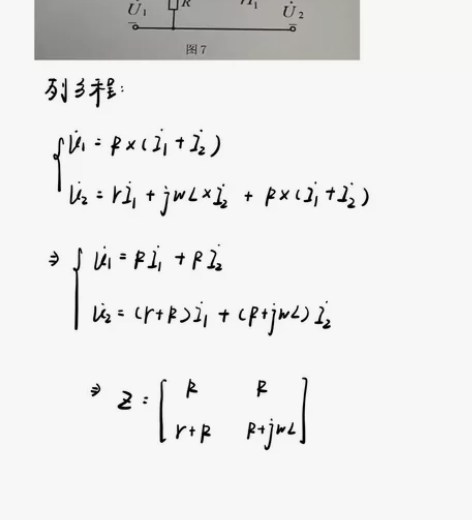 U̇₁ R U̇₂
图7
列方程:
U̇₁ = R×(İ₁ + İ₂)
U̇₂ = rİ₁ + jωL×İ₂ + R×(İ₁ + İ₂)
⇒ U̇₁ = Rİ₁ + Rİ₂
U̇₂ = (r+R)İ₁ + (R+jωL)İ₂
⇒ Z = [ R R
r+R R+jωL ]